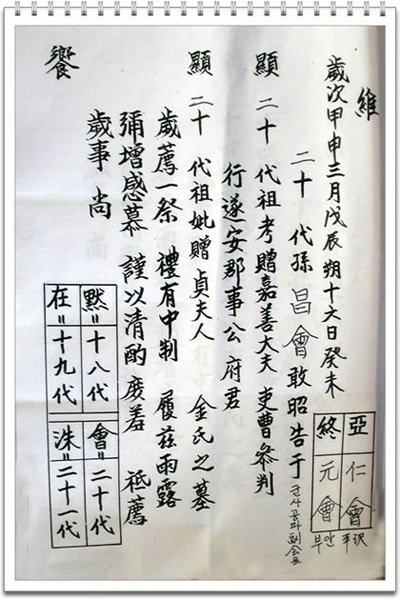 維
歲次甲申三月戊辰朔十六日癸未
二十 代孫 昌會敢昭告于
군사공파
顯 二十 代祖考贈嘉善大夫 吏曹參判
行遂安郡事公府君
顯 二十 代祖妣贈貞夫人 金氏之墓
歲薦一祭 禮有中制 履茲雨露
彌增感慕 謹以清酌庶羞 祗薦
歲事 尚
饗
亞 仁會
終 元會 부안
默=十八代
在=十九代
會=二十代
洙=二十一代